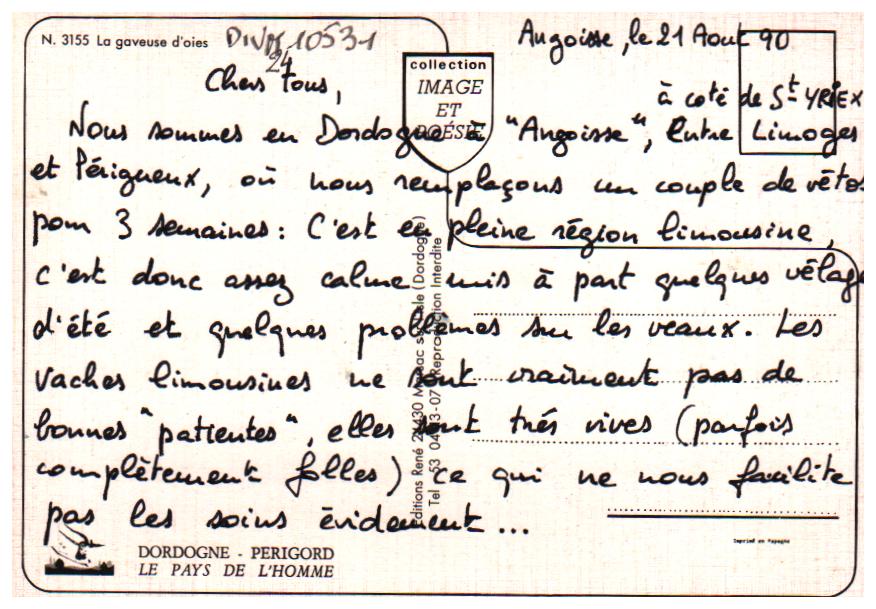 N. 3155 La gaveuse d'oies
24
Angoisse, le 21 Aout 90
Chers tous,
collection
IMAGE
ET
POÉSIE
à coté de St YRIEX
Nous sommes en Dordogne à "Angoisse", Entre Limoges
et Périgueux, où nous remplaçons un couple de vétos
pour 3 semaines: C'est en pleine région limousine,
c'est donc assez calme, mis à part quelques vêlage
d'été et quelques problèmes sur les veaux. Les
vaches limousines ne sont vraiment pas de
bonnes "patientes", elles sont trés vives (parfois
complètement folles) ce qui ne nous facilite
pas les soins évidement...
Editions René
Tel 53
Reproduction Interdite
(Dordogne)
DORDOGNE - PERIGORD
LE PAYS DE L'HOMME